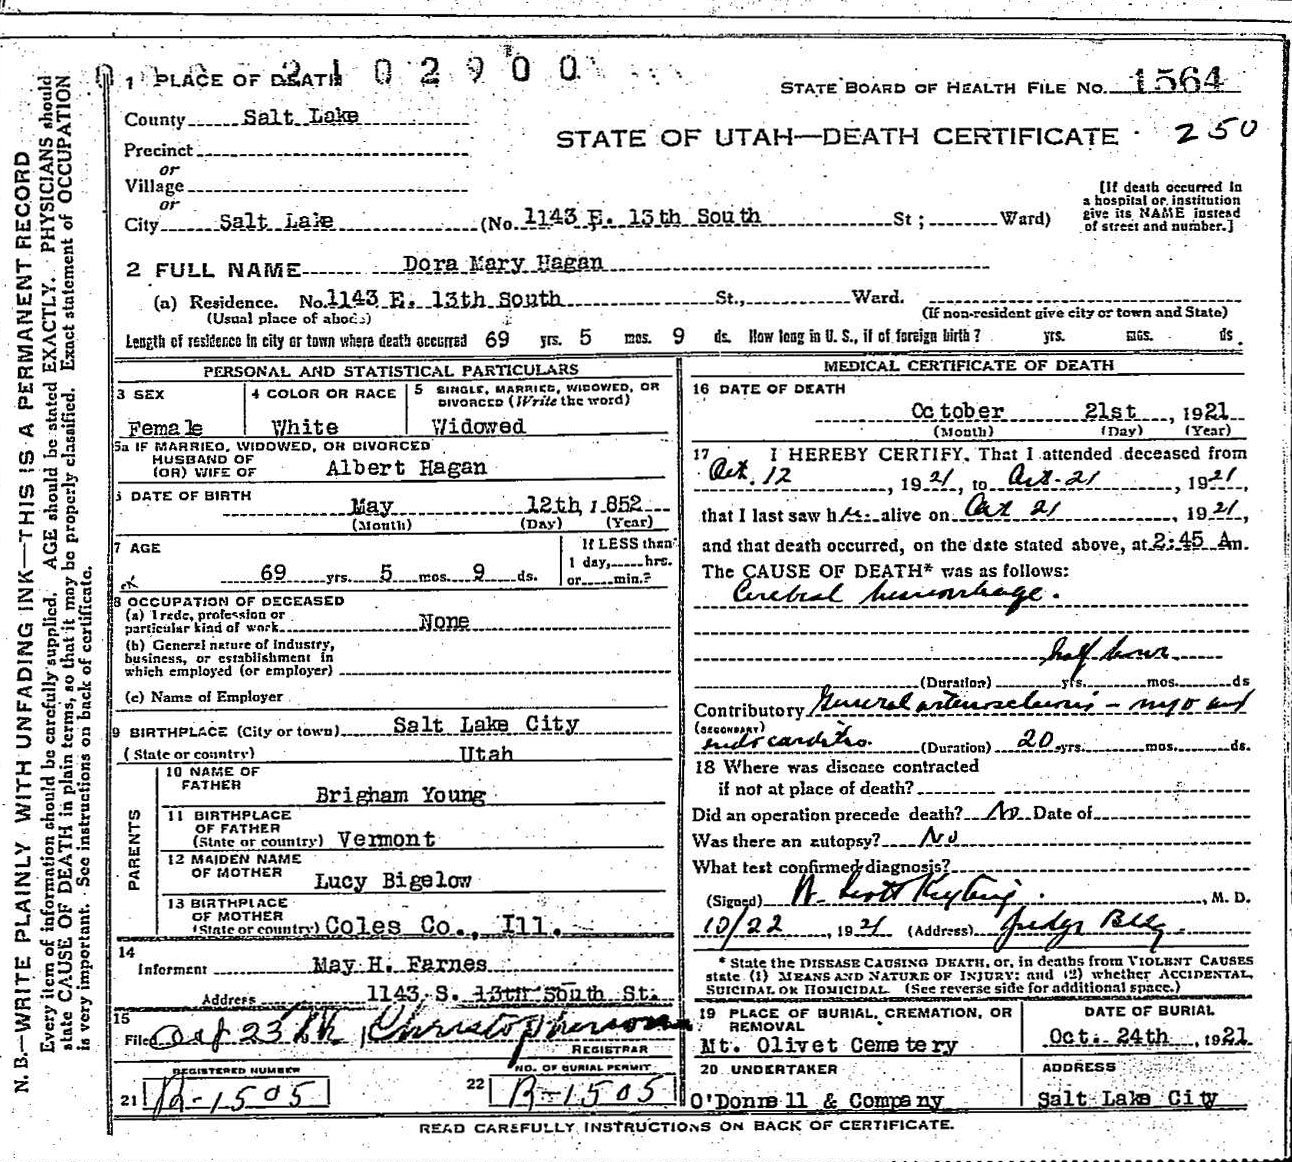 2102900
1 PLACE OF DEATH
STATE BOARD OF HEALTH FILE NO. 1564
County Salt Lake
STATE OF UTAH—DEATH CERTIFICATE 250
Precinct
or
Village
or
City Salt Lake (No. 1143 E. 13th South St; Ward)
[If death occurred in
a hospital or institution
give its NAME instead
of street and number.]
2 FULL NAME Dora Mary Hagan
(a) Residence. No. 1143 E. 13th South St., Ward.
(Usual place of abode) (If non-resident give city or town and State)
Length of residence in city or town where death occurred 69 yrs. 5 mos. 9 ds. How long in U. S., if of foreign birth? yrs. mos. ds.
PERSONAL AND STATISTICAL PARTICULARS
3 SEX 4 COLOR OR RACE 5 SINGLE, MARRIED, WIDOWED, OR
DIVORCED (Write the word)
Female White Widowed
5a IF MARRIED, WIDOWED, OR DIVORCED
HUSBAND OF
(OR) WIFE OF Albert Hagan
6 DATE OF BIRTH
May 12th, 1852
(Month) (Day) (Year)
7 AGE If LESS than
1 day, hrs.
69 yrs. 5 mos. 9 ds. or min.?
8 OCCUPATION OF DECEASED
(a) Trade, profession or
particular kind of work None
(b) General nature of industry,
business, or establishment in
which employed (or employer)
(c) Name of Employer
9 BIRTHPLACE (City or town) Salt Lake City
(State or country) Utah
PARENTS
10 NAME OF
FATHER
Brigham Young
11 BIRTHPLACE
OF FATHER
(State or country) Vermont
12 MAIDEN NAME
OF MOTHER
Lucy Bigelow
13 BIRTHPLACE
OF MOTHER
(State or country) Coles Co., Ill.
14
Informent May H. Farnes
Address 1143 S. 13th South St.
15
Filed Oct 23th, Christopherson
REGISTRAR
REGISTERED NUMBER NO. OF BURIAL PERMIT
21 R-1505 22 R-1505
MEDICAL CERTIFICATE OF DEATH
16 DATE OF DEATH
October 21st, 1921
(Month) (Day) (Year)
17 I HEREBY CERTIFY, That I attended deceased from
Oct. 12, 1921, to Oct-21, 1921,
that I last saw h alive on Oct 21, 1921,
and that death occurred, on the date stated above, at 2:45 Am.
The CAUSE OF DEATH* was as follows:
Cerebral hemorrhage.
half hour
(Duration) yrs. mos. ds
Contributory General arteriosclerosis - myo and
(SECONDARY) endocarditis. (Duration) 20 yrs. mos. ds.
18 Where was disease contracted
if not at place of death?
Did an operation precede death? No Date of
Was there an autopsy? No
What test confirmed diagnosis?
(Signed) W. Scott Keyting, M. D.
10/22, 1921 (Address) Judge Bldg.
* State the DISEASE CAUSING DEATH, or, in deaths from VIOLENT CAUSES
state (1) MEANS AND NATURE OF INJURY; and (2) whether ACCIDENTAL,
SUICIDAL OR HOMICIDAL. (See reverse side for additional space.)
19 PLACE OF BURIAL, CREMATION, OR
REMOVAL
DATE OF BURIAL
Mt. Olivet Cemetery Oct. 24th, 1921
20 UNDERTAKER ADDRESS
O'Donnell & Company Salt Lake City
READ CAREFULLY INSTRUCTIONS ON BACK OF CERTIFICATE.
N. B.—WRITE PLAINLY WITH UNFADING INK—THIS IS A PERMANENT RECORD
Every item of information should be carefully supplied. AGE should be stated EXACTLY. PHYSICIANS should
state CAUSE OF DEATH in plain terms, so that it may be properly classified. Exact statement of OCCUPATION
is very important. See instructions on back of certificate.